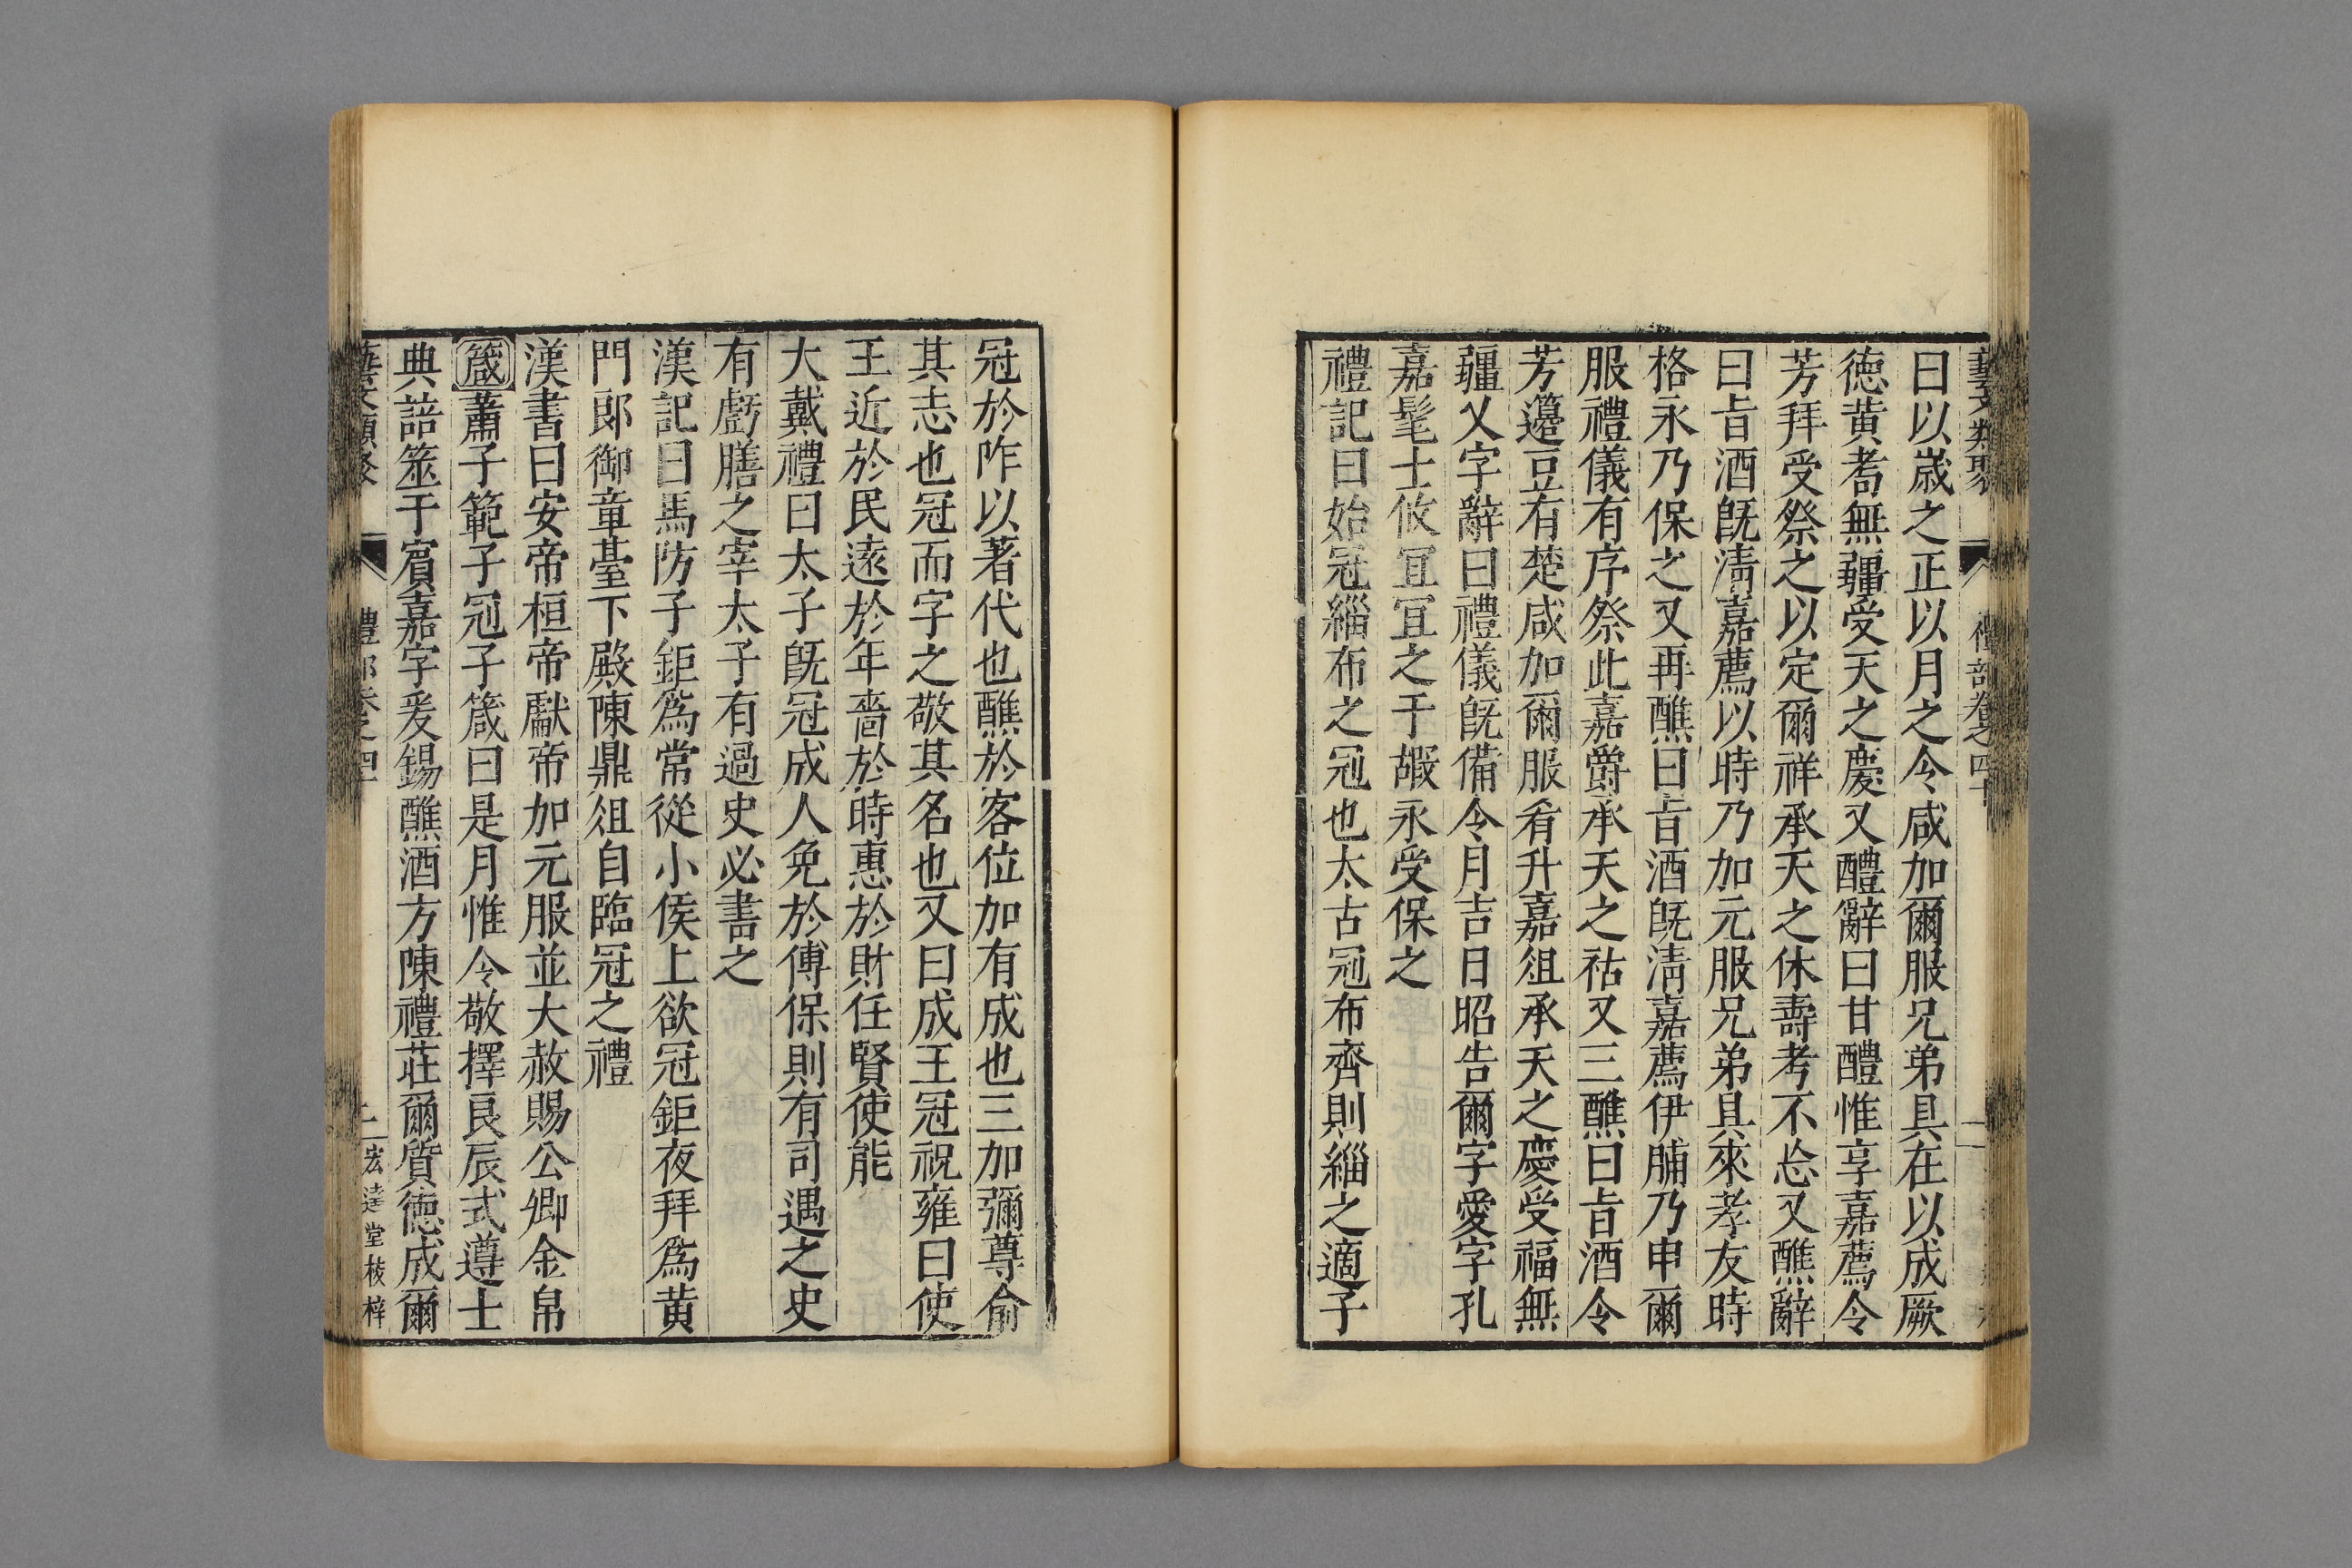 藝文類聚 禮部卷之四十
曰以歲之正以月之令咸加爾服兄弟具在以成厥
德黄耉無疆受天之慶又醴辭曰甘醴惟享嘉薦令
芳拜受祭之以定爾祥承天之休壽考不忘又醮辭
曰㫖酒既清嘉薦以時乃加元服兄弟具來孝友時
格永乃保之又再醮曰㫖酒既淸嘉薦伊脯乃申爾
服禮儀有序祭此嘉爵承天之祜又三醮曰㫖酒令
芳籩豆有楚咸加爾服肴升嘉俎承天之慶受福無
疆乂字辭曰禮儀既備令月吉日昭告爾字愛字孔
嘉髦士攸冝冝之于嘏永受保之
禮記曰始冠緇布之冠也太古冠布齊則緇之適子
冠於阼以著代也醮於客位加有成也三加彌尊俞
其志也冠而字之敬其名也又曰成王冠祝雍曰使
王近於民遠於年嗇於時惠於財任賢使能
大戴禮曰太子既冠成人免於傅保則有司過之史
有虧膳之宰太子有過史必書之
漢記曰馬防子鉅爲常從小侯上欲冠鉅夜拜爲黄
門郎御章臺下殿陳鼎俎自臨冠之禮
漢書曰安帝桓帝獻帝加元服並大赦賜公卿金帛
箴蕭子範子冠子箴曰是月惟令敬擇良辰式遵士
典諮筮于賔嘉字爰錫醮酒方陳禮莊爾質德成爾
藝文類聚 禮部卷之四 二 宏達堂校梓